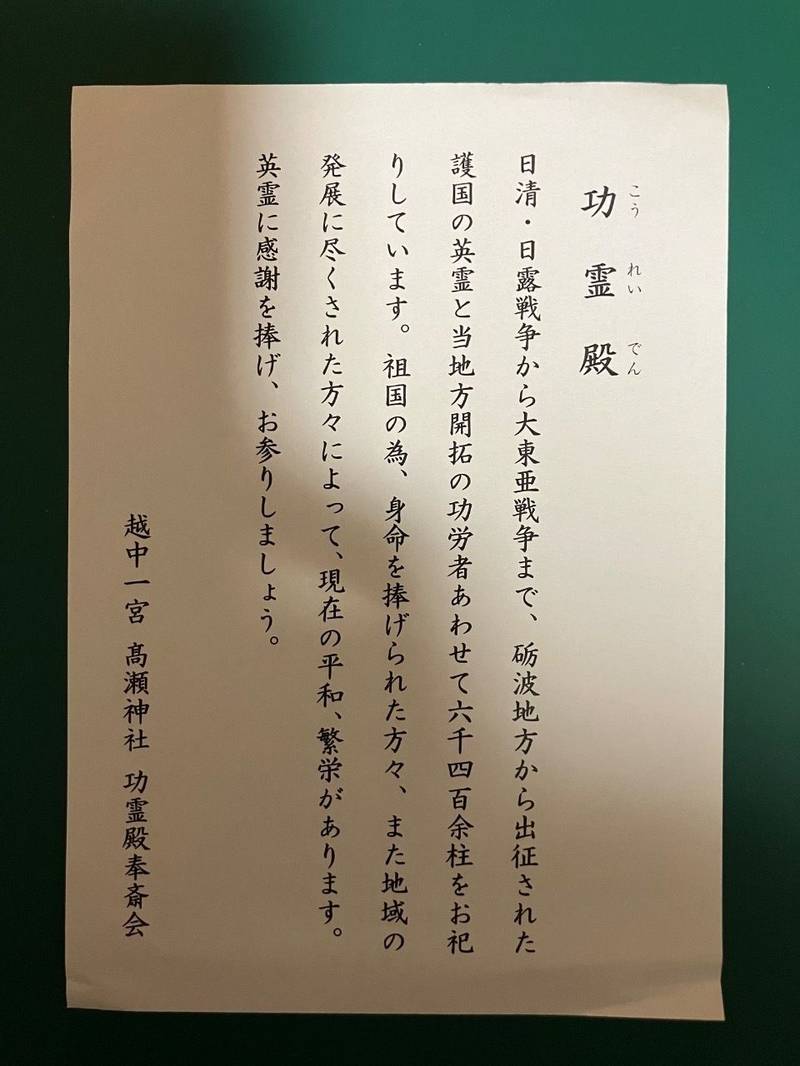 功霊殿
こうれいでん
日清・日露戦争から大東亜戦争まで、砺波地方から出征された
護国の英霊と当地方開拓の功労者あわせて六千四百余柱をお祀
りしています。祖国の為、身命を捧げられた方々、また地域の
発展に尽くされた方々によって、現在の平和、繁栄があります。
英霊に感謝を捧げ、お参りしましょう。
越中一宮 髙瀬神社 功霊殿奉斎会